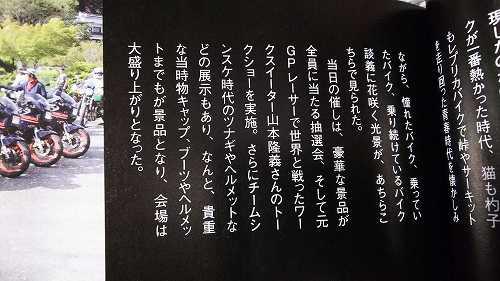 クが一番熱かった時代、猫も杓子
もレプリカバイクで峠やサーキット
を走り回った青春時代を懐かしみ
ながら、憧れたバイク、乗ってい
たバイク、乗り続けているバイク
談義に花咲く光景が、あちらこ
ちらで見られた。
当日の催しは、豪華な景品が
全員に当たる抽選会、そして元
GPレーサーで世界と戦ったワー
クスイーター山本隆義さんのトー
クショーを実施。さらにチームシ
ンスケ時代のツナギやヘルメットな
どの展示もあり、なんと、貴重
な当時物キャップ、ブーツやヘルメッ
トまでもが景品となり、会場は
大盛り上がりとなった。